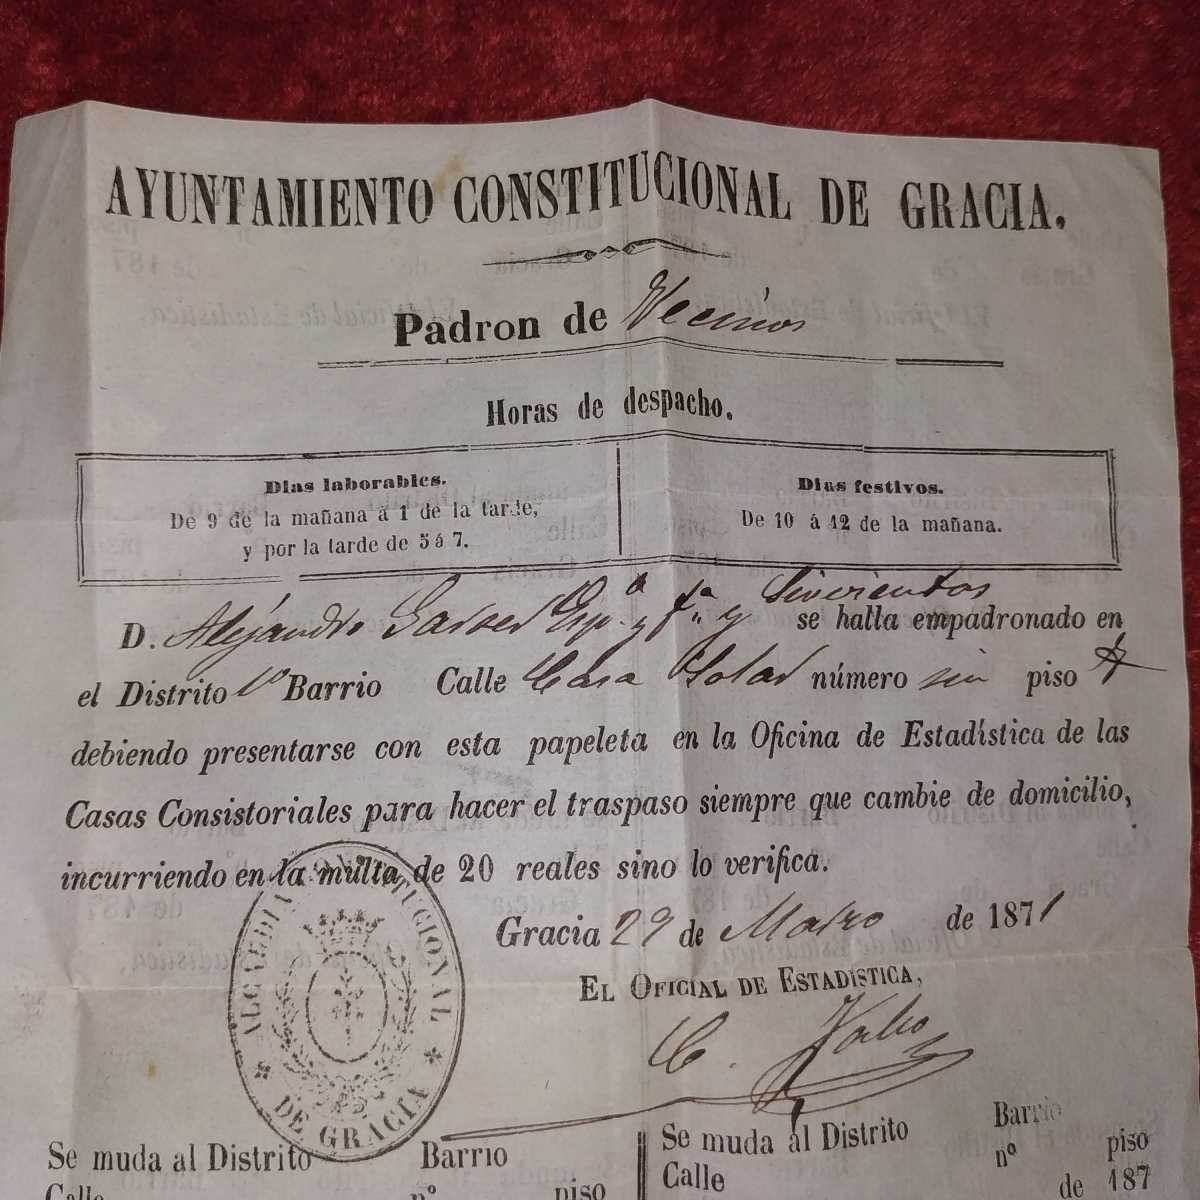 AYUNTAMIENTO CONSTITUCIONAL DE GRACIA.
Padron de Vecinos
Horas de despacho.
Dias laborables.
De 9 de la mañana á 1 de la tarde,
y por la tarde de 5 á 7.
Dias festivos.
De 10 á 12 de la mañana.
D. Alejandro Espª y fª y Sirvientes se halla empadronado en
el Distrito 1º Barrio Calle Casa número sin piso
debiendo presentarse con esta papeleta en la Oficina de Estadística de las
Casas Consistoriales para hacer el traspaso siempre que cambie de domicilio,
incurriendo en la multa de 20 reales sino lo verifica.
Gracia 29 de Marzo de 1871
EL OFICIAL DE ESTADÍSTICA,
ALCALDIA CONSTITUCIONAL
* DE GRACIA *
Se muda al Distrito Barrio
Calle nº piso
Se muda al Distrito Barrio
Calle nº piso
de 187